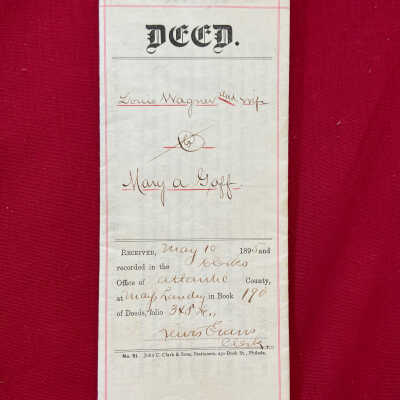 DEED.
Louis Wagner and Wife
to
Mary A Goff
RECEIVED, May 10 1895 and
recorded in the Clerks
Office of Atlantic County,
at Mays Landing in Book 190
of Deeds, folio 348 &c.,
Lewis Evans
Clerk
No. 91. John C. Clark & Sons, Stationers, 230 Dock St., Philada.